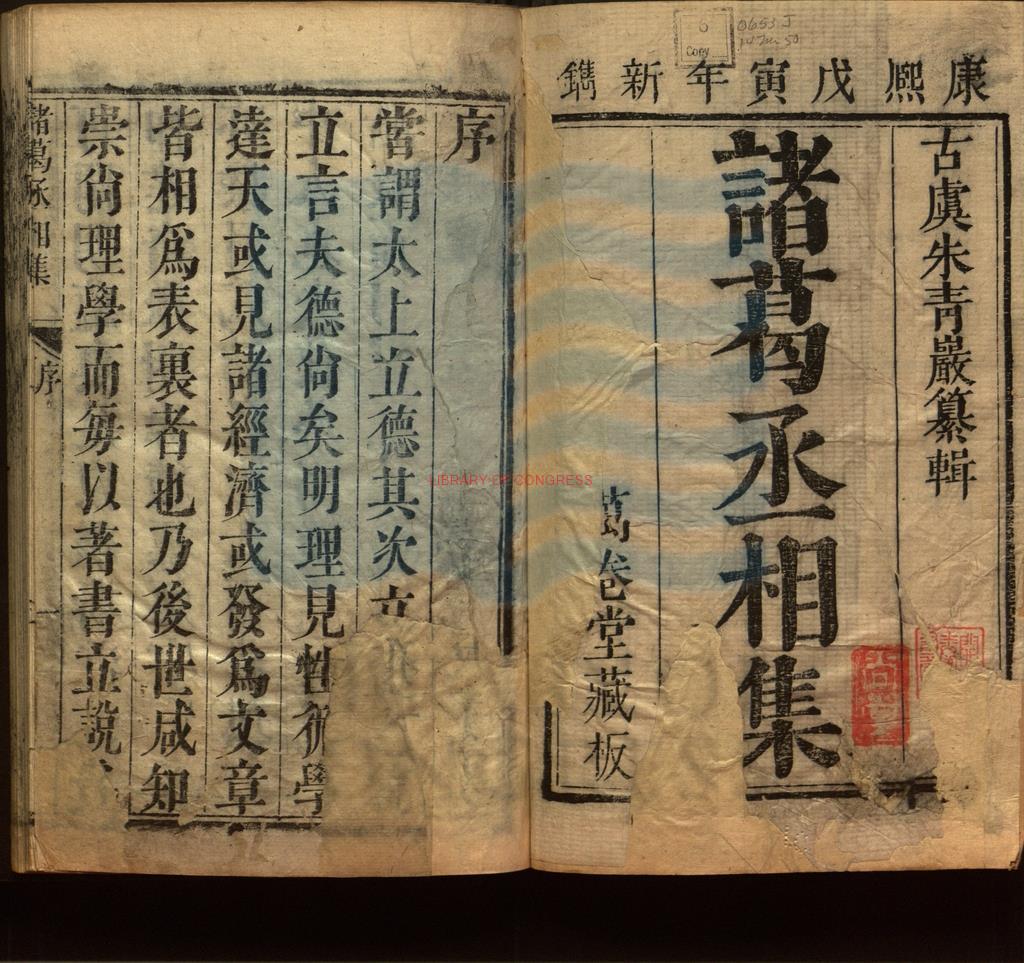 康熈戊寅年新鐫
古虞朱青巖纂輯
諸葛丞相集
萬卷堂藏板
序
嘗謂太上立德其次立
立言夫德尙矣明理見性術學
達天或見諸經濟或發爲文章
皆相爲表裏者也乃後世咸知
崇尙理學而毎以著書立說
諸葛丞相集
序
一
LIBRARY OF CONGRESS
6
Copy